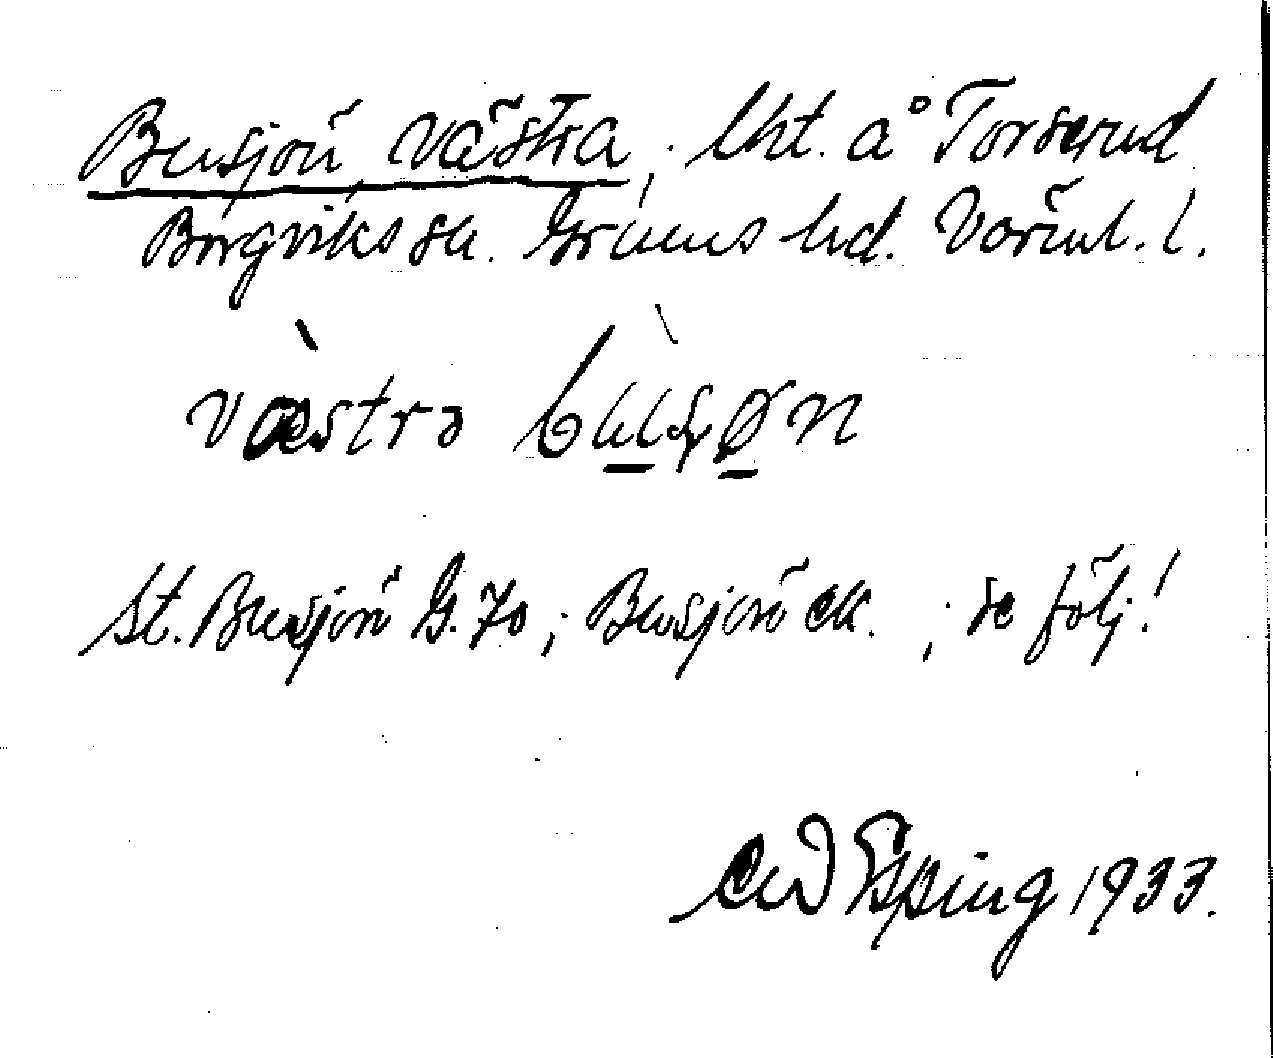 Busjön, Västra, lht. å Torserud
Borgviks sn. Grums hd. Värml. l.
væ̀stra bùsjøn
St. Busjön G. 70; Busjön ek. ; se följ!
Espling 1933.